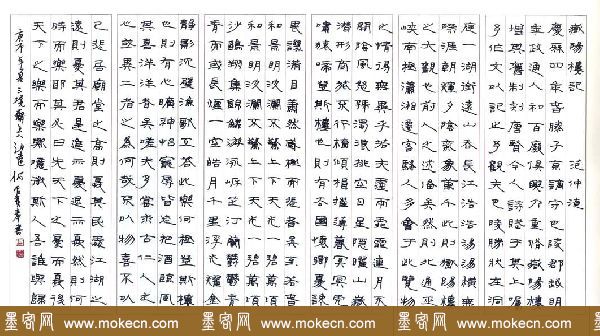 岳陽樓記 范仲淹
慶曆四年春滕子京謫守巴陵郡越明
年政通人和百廢俱興乃重修岳陽樓
增其舊制刻唐賢今人詩賦于其上屬
予作文以記之予觀夫巴陵勝狀在洞
庭一湖銜遠山吞長江浩浩湯湯橫無
際涯朝暉夕陰氣象萬千此則岳陽樓
之大觀也前人之述備矣然則北通巫
峽南極瀟湘遷客騷人多會于此覽物
之情得無異乎若夫淫雨霏霏連月不
開陰風怒號濁浪排空日星隱曜山岳
潛形商旅不行檣傾楫摧薄暮冥冥虎
嘯猿啼登斯樓也則有去國懷鄉憂讒
畏譏滿目蕭然感極而悲者矣至若春
和景明波瀾不驚上下天光一碧萬頃
和景明波瀾不驚上下天光一碧萬頃
沙鷗翔集錦鱗游泳岸芷汀蘭鬱鬱青
青而或長煙一空皓月千里浮光躍金
靜影沉璧漁歌互答此樂何極登斯樓
也則有心曠神怡寵辱皆忘把酒臨風
其喜洋洋者矣嗟夫予嘗求古仁人之
心或異二者之為何哉不以物喜不以
己悲居廟堂之高則憂其民處江湖之
遠則憂其君是進亦憂退亦憂然則何
時而樂耶其必曰先天下之憂而憂後
天下之樂而樂歟噫微斯人吾誰與歸
墨客网 www.mokecn.com 墨客网 www.mokecn.com 墨客网 www.mokecn.com